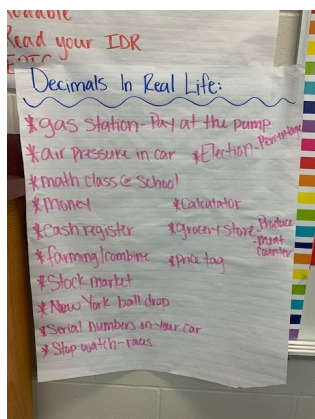 Readable
Read your IDR
EPIC
Decimals In Real Life:
*gas station-Pay at the pump
*air pressure in car *Election-Percentage
*math class@school
*money *Calculator
*cash register *grocery store Produce
-meat
counter
*farming/combine *price tag
*Stock market
*New York ball drop
*Serial numbers on your car
*Stop watch-races